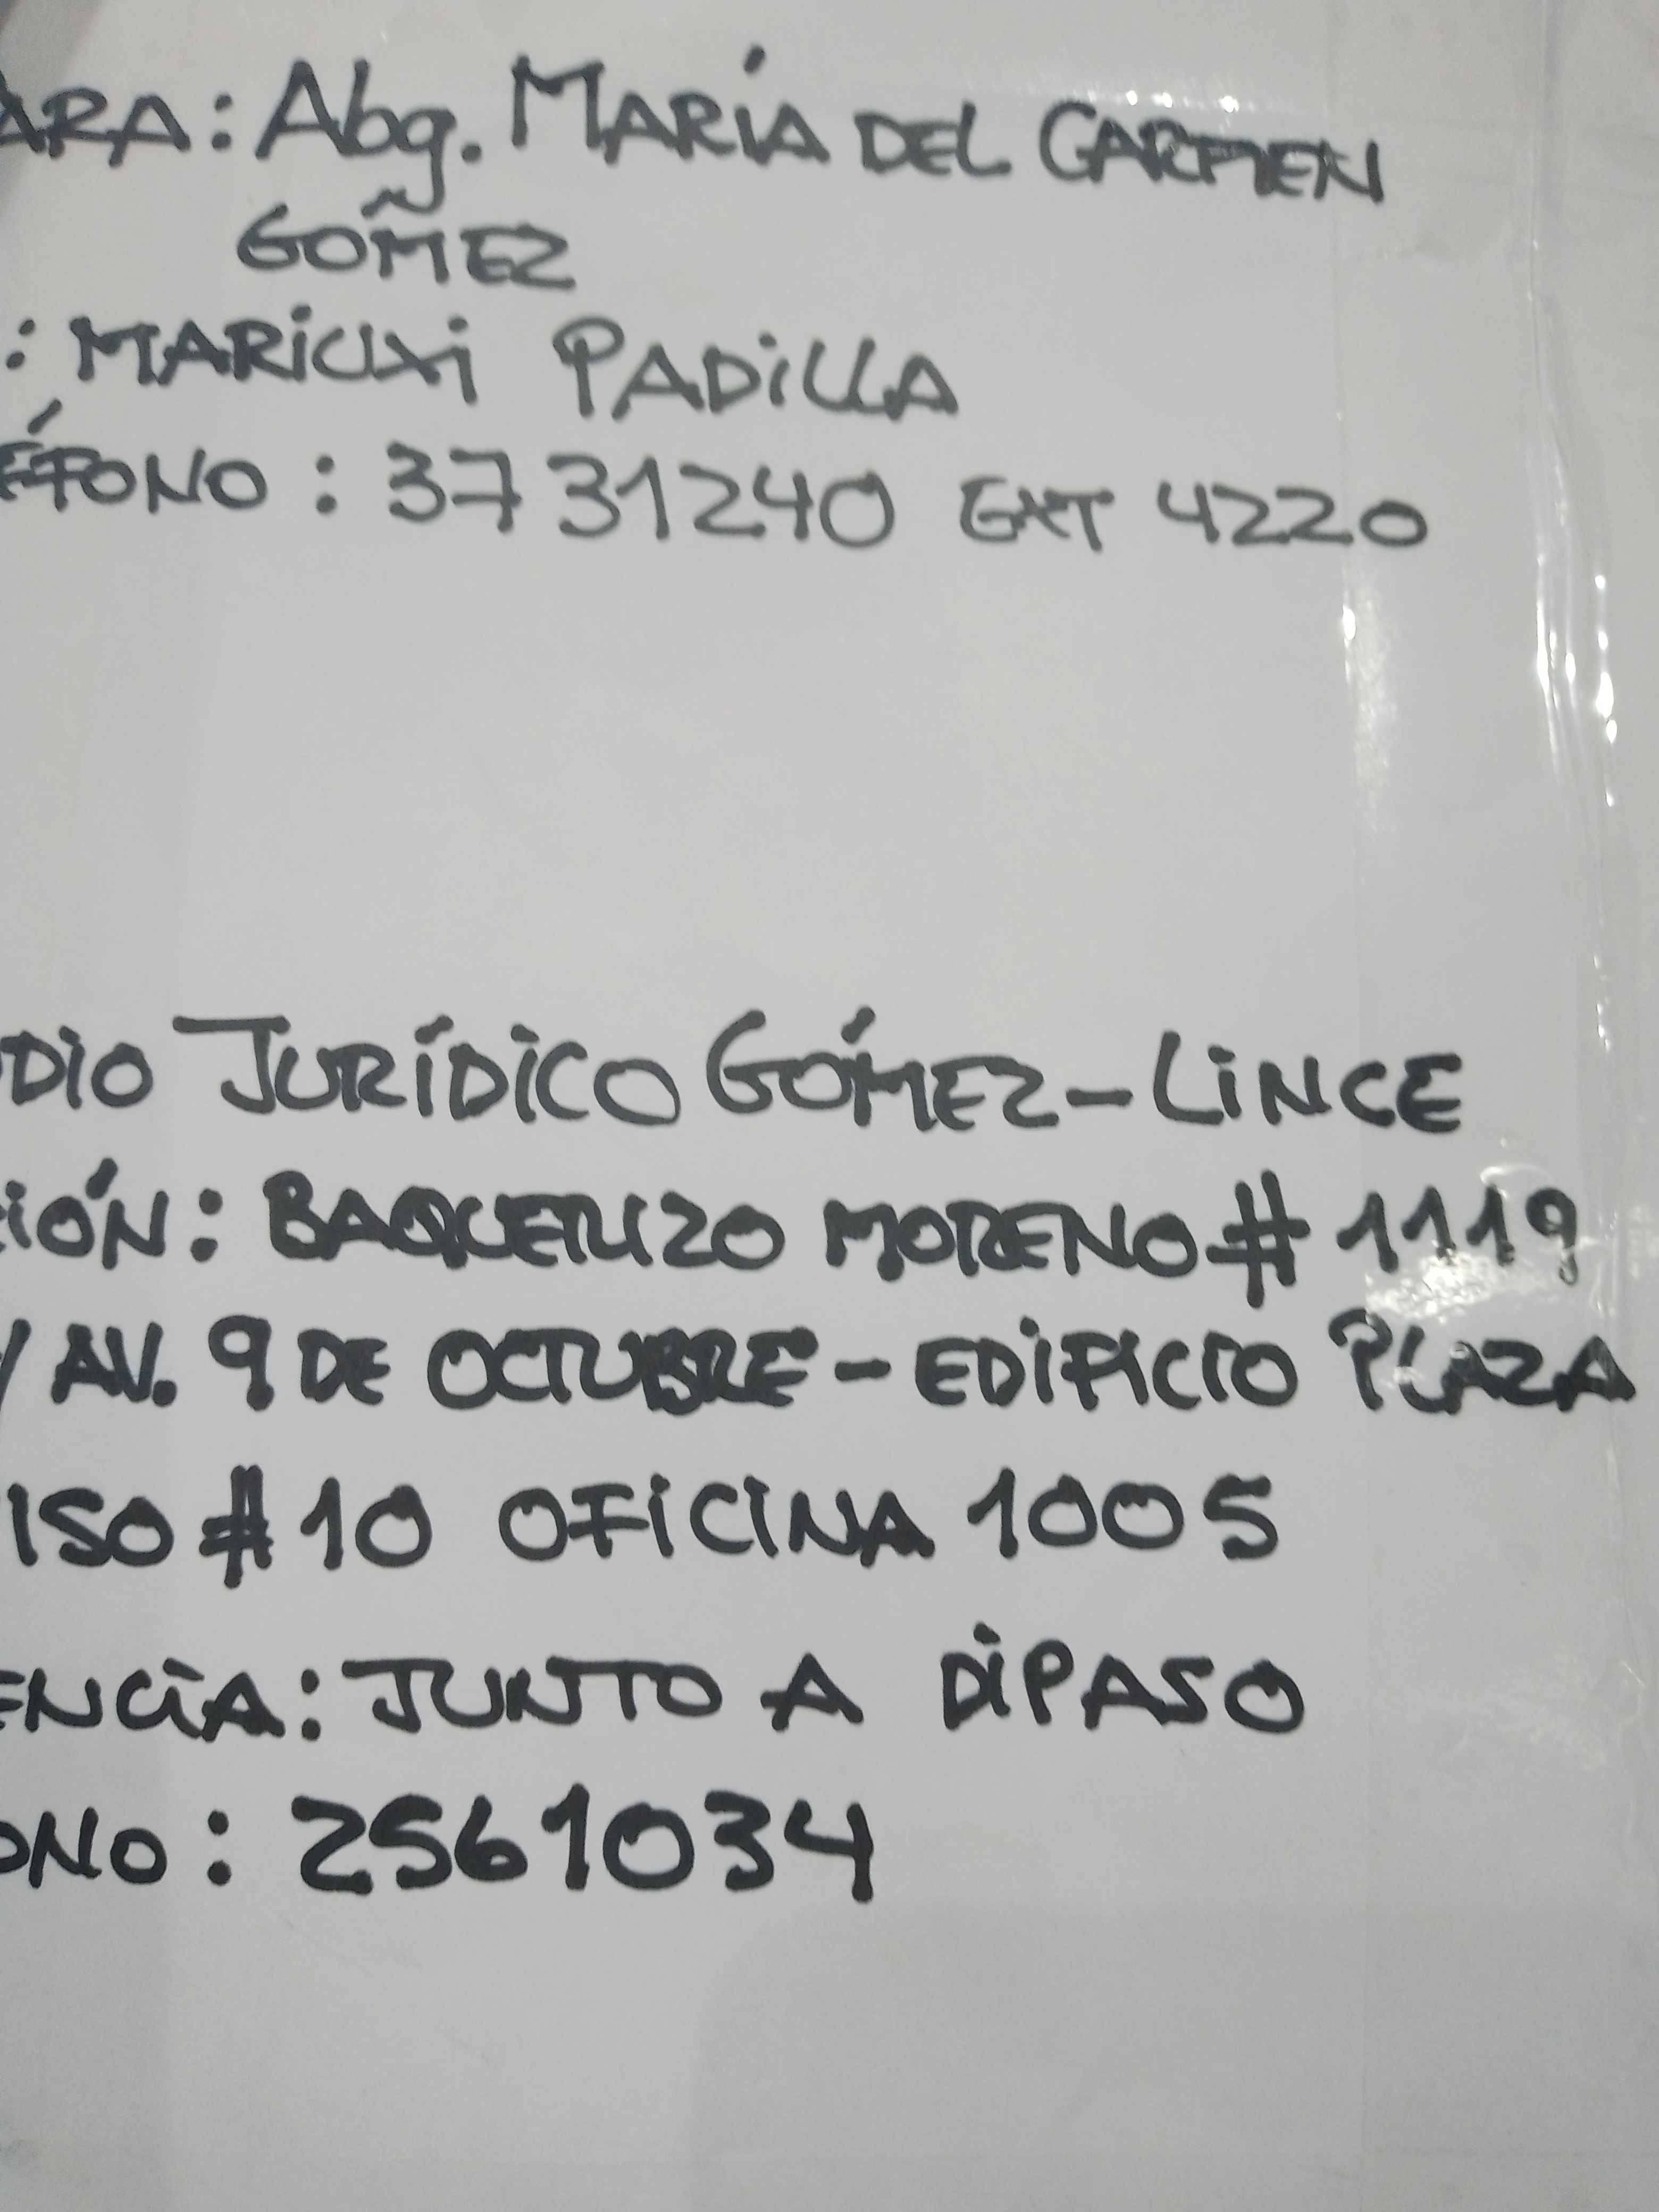 ARA: Abg. MARÍA DEL CARMEN
GOMEZ
: MARIUXI PADILLA
ÉFONO: 3731240 EXT 4220
DIO JURÍDICO GÓMEZ-LINCE
IÓN: BAQUERIZO MORENO # 1119
/ AV. 9 DE OCTUBRE - EDIFICIO PLAZA
ISO #10 OFICINA 1005
ENCIA: JUNTO A DIPASO
ONO: 2561034